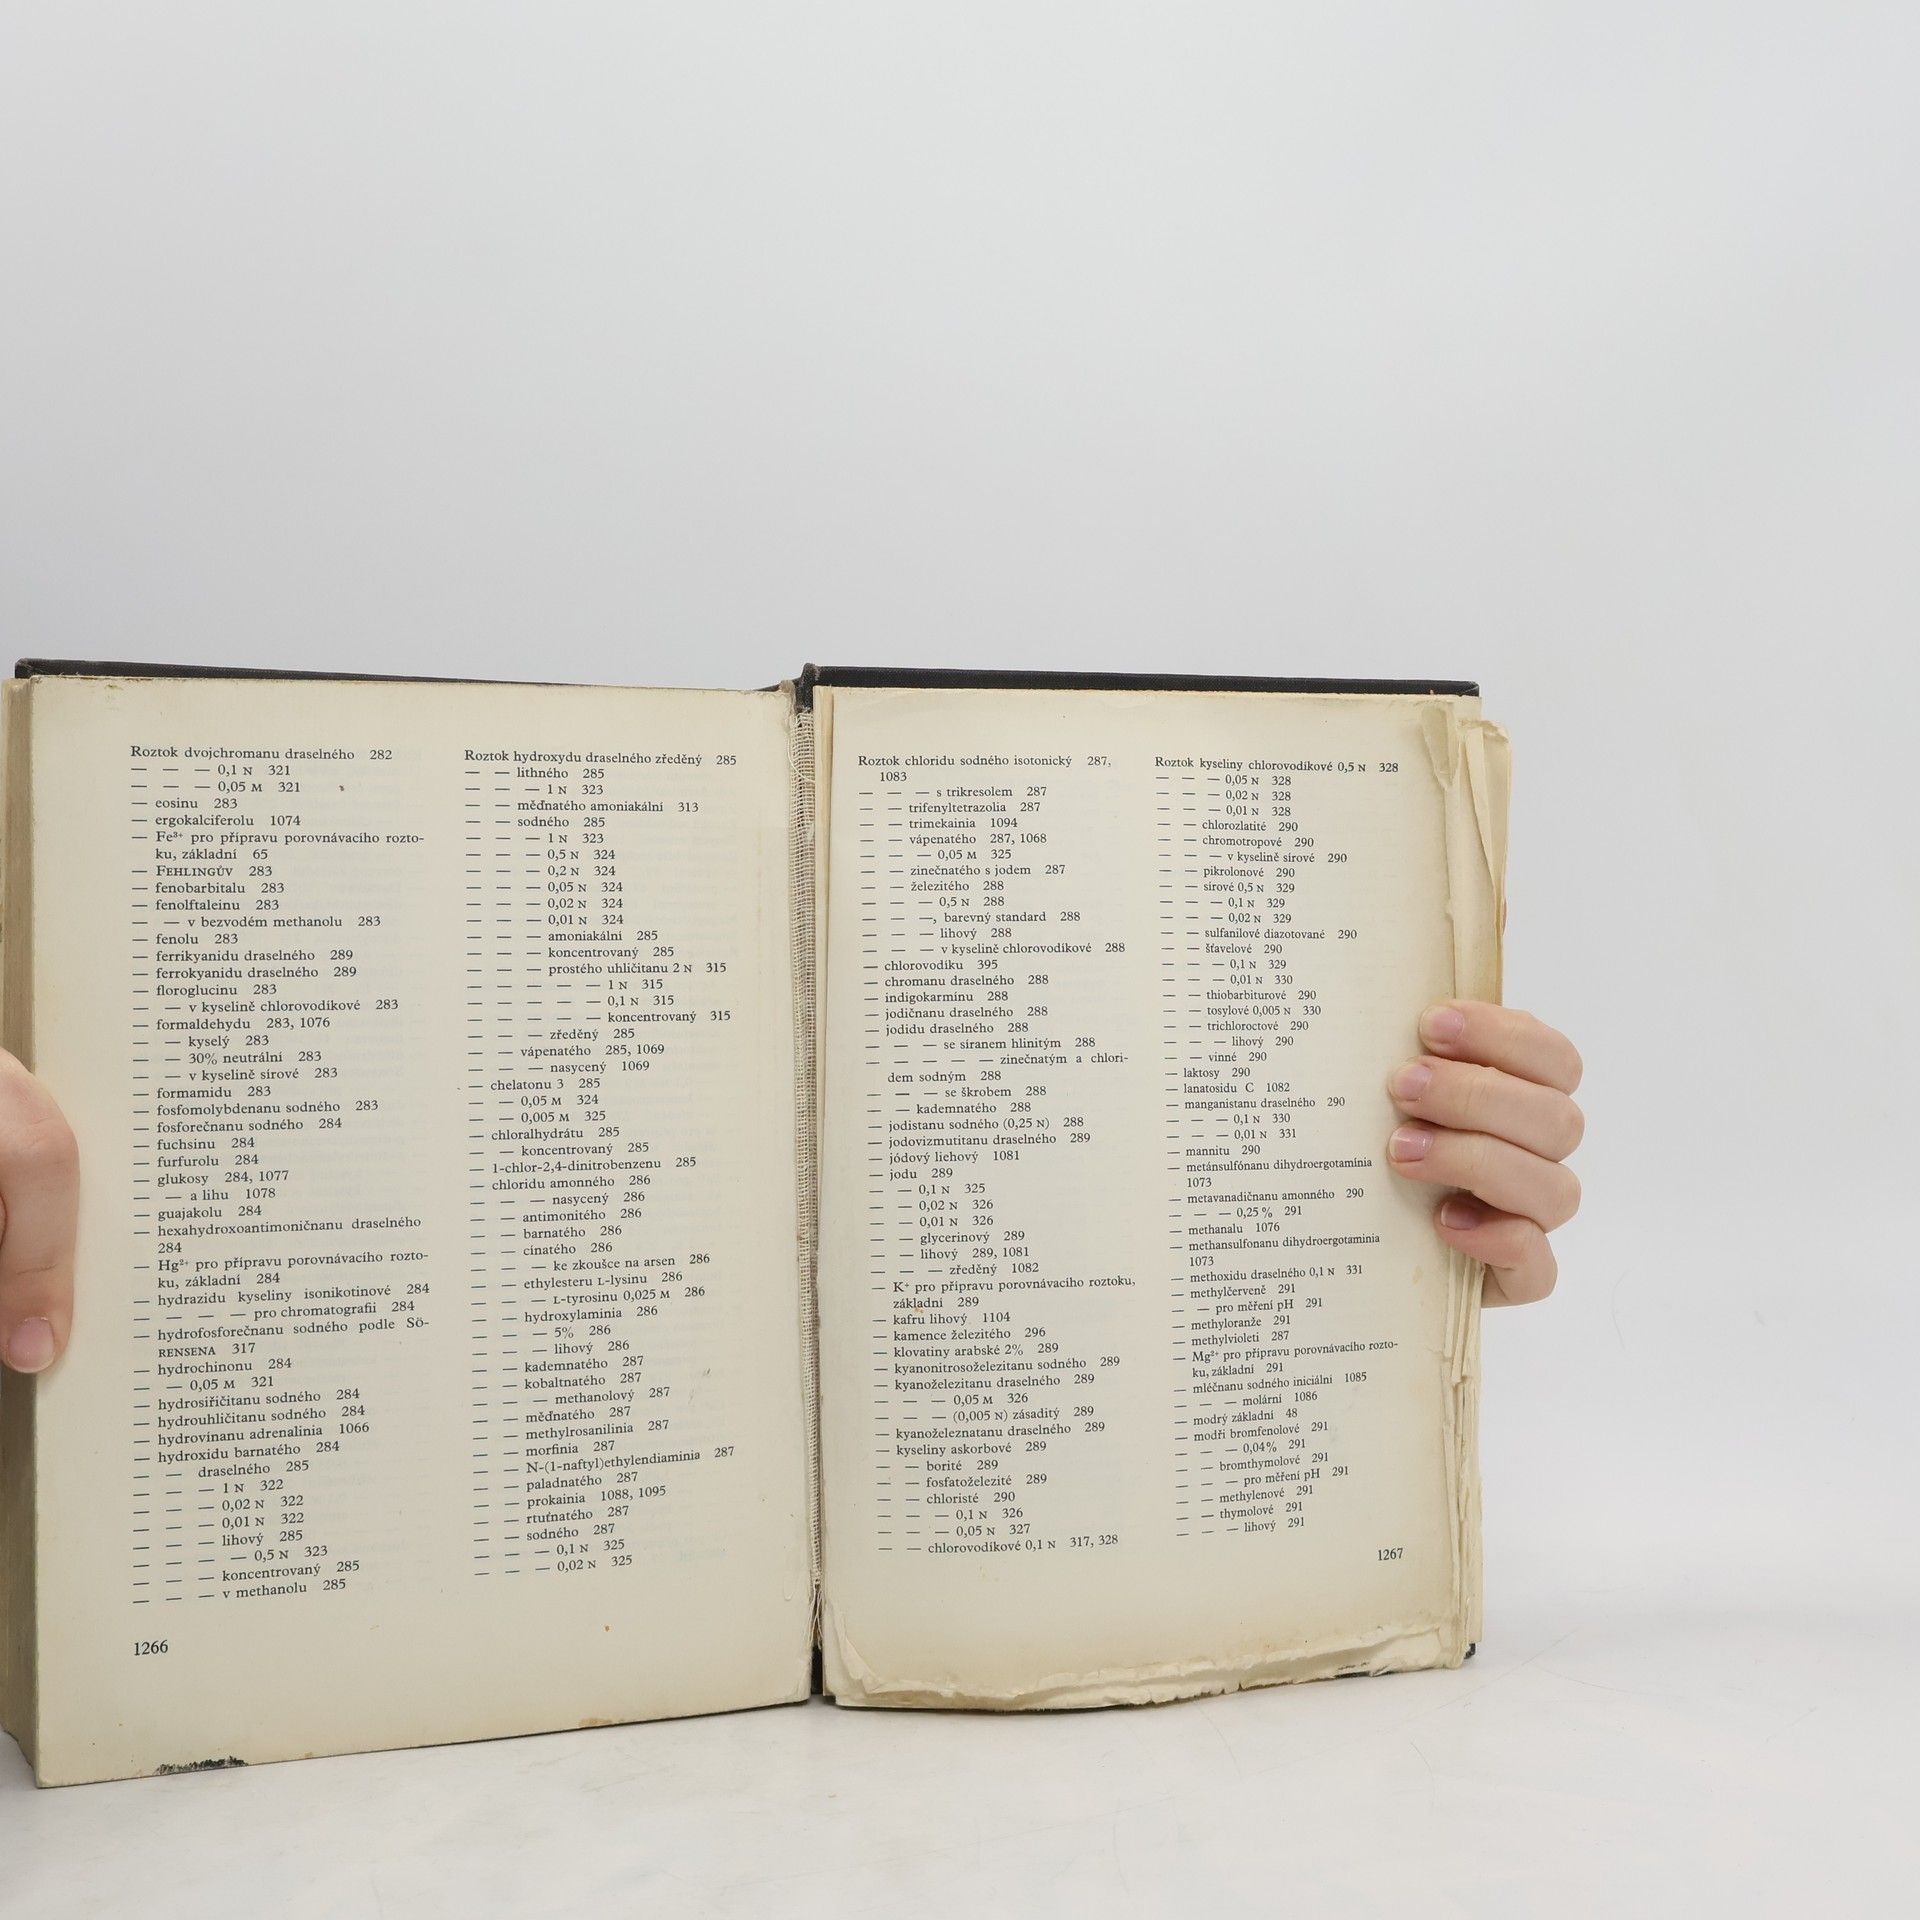 Roztok dvojchromanu draselného 282
— — — 0,1 N 321
— — — 0,05 M 321
— eosinu 283
— ergokalciferolu 1074
— Fe³⁺ pro přípravu porovnávacího rozto-
ku, základní 65
— FEHLINGŮV 283
— fenobarbitalu 283
— fenolftaleinu 283
— — v bezvodém methanolu 283
— fenolu 283
— ferrikyanidu draselného 289
— ferrokyanidu draselného 289
— floroglucinu 283
— — v kyselině chlorovodíkové 283
— formaldehydu 283, 1076
— — kyselý 283
— — 30% neutrální 283
— — v kyselině sírové 283
— formamidu 283
— fosfomolybdenanu sodného 283
— fosforečnanu sodného 284
— fuchsinu 284
— furfurolu 284
— glukosy 284, 1077
— — a lihu 1078
— guajakolu 284
— hexahydroxoantimoničnanu draselného
284
— Hg²⁺ pro přípravu porovnávacího rozto-
ku, základní 284
— hydrazidu kyseliny isonikotinové 284
— — — — pro chromatografii 284
— hydrofosforečnanu sodného podle Sö-
RENSENA 317
— hydrochinonu 284
— — 0,05 M 321
— hydrosiřičitanu sodného 284
— hydrouhličitanu sodného 284
— hydrovínanu adrenalinia 1066
— hydroxidu barnatého 284
— — draselného 285
— — — 1 N 322
— — — 0,02 N 322
— — — 0,01 N 322
— — — lihový 285
— — — — 0,5 N 323
— — — koncentrovaný 285
— — — v methanolu 285
1266
Roztok hydroxydu draselného zředěný 285
— — lithného 285
— — — 1 N 323
— — měďnatého amoniakální 313
— — sodného 285
— — — 1 N 323
— — — 0,5 N 324
— — — 0,2 N 324
— — — 0,05 N 324
— — — 0,02 N 324
— — — 0,01 N 324
— — — amoniakální 285
— — — koncentrovaný 285
— — — prostého uhličitanu 2 N 315
— — — — — 1 N 315
— — — — — 0,1 N 315
— — — — — koncentrovaný 315
— — — zředěný 285
— — vápenatého 285, 1069
— — — nasycený 1069
— chelatonu 3 285
— — 0,05 M 324
— — 0,005 M 325
— chloralhydrátu 285
— — koncentrovaný 285
— 1-chlor-2,4-dinitrobenzenu 285
— chloridu amonného 286
— — — nasycený 286
— — antimonitého 286
— — barnatého 286
— — cínatého 286
— — — ke zkoušce na arsen 286
— — ethylesteru L-lysinu 286
— — — L-tyrosinu 0,025 M 286
— — hydroxylaminia 286
— — — 5% 286
— — — lihový 286
— — kademnatého 287
— — kobaltnatého 287
— — — methanolový 287
— — měďnatého 287
— — methylrosanilinia 287
— — morfinia 287
— — N-(1-naftyl)ethylendiaminia 287
— — paladnatého 287
— — prokainia 1088, 1095
— — rtuťnatého 287
— — sodného 287
— — — 0,1 N 325
— — — 0,02 N 325
Roztok chloridu sodného isotonický 287,
1083
— — — s trikresolem 287
— — trifenyltetrazolia 287
— — trimekainia 1094
— — vápenatého 287, 1068
— — — 0,05 M 325
— — zinečnatého s jodem 287
— — železitého 288
— — — 0,5 N 288
— — —, barevný standard 288
— — — lihový 288
— — — v kyselině chlorovodíkové 288
— chlorovodíku 395
— chromanu draselného 288
— indigokarmínu 288
— jodičnanu draselného 288
— jodidu draselného 288
— — — se síranem hlinitým 288
— — — — — zinečnatým a chlori-
dem sodným 288
— — — se škrobem 288
— — kademnatého 288
— jodistanu sodného (0,25 N) 288
— jodovizmutitanu draselného 289
— jódový liehový 1081
— jodu 289
— — 0,1 N 325
— — 0,02 N 326
— — 0,01 N 326
— — glycerinový 289
— — lihový 289, 1081
— — — zředěný 1082
— K⁺ pro přípravu porovnávacího roztoku,
základní 289
— kafru lihový 1104
— kamence železitého 296
— klovatiny arabské 2% 289
— kyanonitrosoželezitanu sodného 289
— kyanoželezitanu draselného 289
— — — 0,05 M 326
— — — (0,005 N) zásaditý 289
— kyanoželeznatanu draselného 289
— kyseliny askorbové 289
— — borité 289
— — fosfatoželezité 289
— — chloristé 290
— — — 0,1 N 326
— — — 0,05 N 327
— — chlorovodíkové 0,1 N 317, 328
Roztok kyseliny chlorovodíkové 0,5 N 328
— — — 0,05 N 328
— — — 0,02 N 328
— — — 0,01 N 328
— — chlorozlatité 290
— — chromotropové 290
— — — v kyselině sírové 290
— — pikrolonové 290
— — sírové 0,5 N 329
— — — 0,1 N 329
— — — 0,02 N 329
— — sulfanilové diazotované 290
— — šťavelové 290
— — — 0,1 N 329
— — — 0,01 N 330
— — thiobarbiturové 290
— — tosylové 0,005 N 330
— — trichloroctové 290
— — — lihový 290
— — vinné 290
— laktosy 290
— lanatosidu C 1082
— manganistanu draselného 290
— — — 0,1 N 330
— — — 0,01 N 331
— mannitu 290
— metánsulfónanu dihydroergotamínia
1073
— metavanadičnanu amonného 290
— — — 0,25 % 291
— methanalu 1076
— methansulfonanu dihydroergotaminia
1073
— methoxidu draselného 0,1 N 331
— methylčerveně 291
— — pro měření pH 291
— methyloranže 291
— methylvioleti 287
— Mg²⁺ pro přípravu porovnávacího rozto-
ku, základní 291
— mléčnanu sodného iniciální 1085
— — — molární 1086
— modrý základní 48
— modři bromfenolové 291
— — — 0,04% 291
— — bromthymolové 291
— — — pro měření pH 291
— — methylenové 291
— — thymolové 291
— — — lihový 291
1267